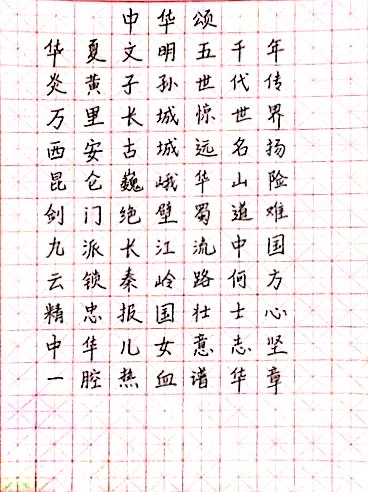 中华颂
华夏文明五千年
炎黄子孙世代传
万里长城惊世界
西安古城远名扬
昆仑巍峨华山险
剑门绝壁蜀道难
九派长江流中国
云锁秦岭路何方
精忠报国壮士心
中华儿女意志坚
一腔热血谱华章